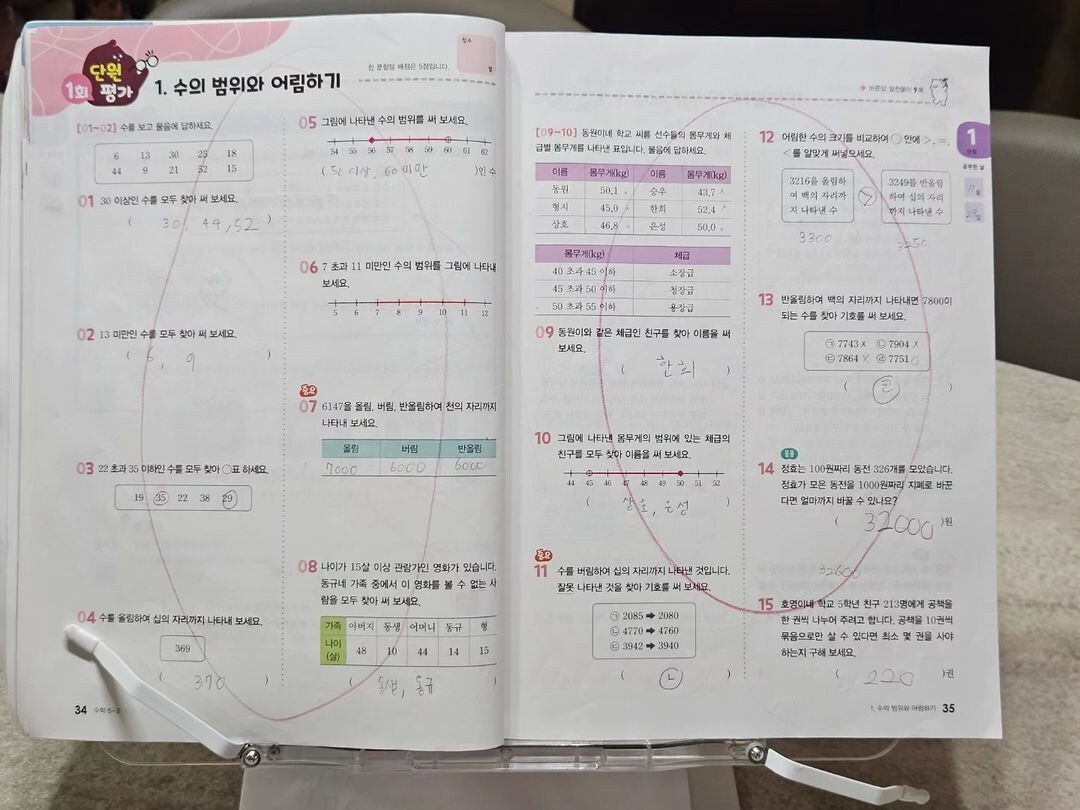 단원
1회 평가
1. 수의 범위와 어림하기
한 문항당 배점은 5점입니다.
점수
점
[01~02] 수를 보고 물음에 답하세요.
6 13 30 25 18
44 9 21 52 15
01 30 이상인 수를 모두 찾아 써 보세요.
( 30, 44, 52 )
02 13 미만인 수를 모두 찾아 써 보세요.
( 6, 9 )
03 22 초과 35 이하인 수를 모두 찾아 ○표 하세요.
19 35 22 38 29
04 수를 올림하여 십의 자리까지 나타내 보세요.
369
( 370 )
34 수학 5-2
05 그림에 나타낸 수의 범위를 써 보세요.
54 55 56 57 58 59 60 61 62
( 56 이상, 60 미만 )인 수
06 7 초과 11 미만인 수의 범위를 그림에 나타내
보세요.
5 6 7 8 9 10 11 12
중요
07 6147을 올림, 버림, 반올림하여 천의 자리까지
나타내 보세요.
올림 버림 반올림
7000 6000 6000
08 나이가 15살 이상 관람가인 영화가 있습니다.
동규네 가족 중에서 이 영화를 볼 수 없는 사
람을 모두 찾아 써 보세요.
가족 아버지 동생 어머니 동규 형
나이(살) 48 10 44 14 15
( 동생, 동규 )
[09~10] 동원이네 학교 씨름 선수들의 몸무게와 체
급별 몸무게를 나타낸 표입니다. 물음에 답하세요.
이름 몸무게(kg) 이름 몸무게(kg)
동원 50.1 승우 43.7
형지 45.0 한희 52.4
상호 46.8 은성 50.0
몸무게(kg) 체급
40 초과 45 이하 소장급
45 초과 50 이하 청장급
50 초과 55 이하 용장급
09 동원이와 같은 체급인 친구를 찾아 이름을 써
보세요.
( 한희 )
10 그림에 나타낸 몸무게의 범위에 있는 체급의
친구를 모두 찾아 이름을 써 보세요.
44 45 46 47 48 49 50 51 52
( 상호, 은성 )
중요
11 수를 버림하여 십의 자리까지 나타낸 것입니다.
잘못 나타낸 것을 찾아 기호를 써 보세요.
㉠ 2085 ➡ 2080
㉡ 4770 ➡ 4760
㉢ 3942 ➡ 3940
( ㉡ )
바른답·알찬풀이 9쪽
12 어림한 수의 크기를 비교하여 ○ 안에 >, =,
<를 알맞게 써넣으세요.
3216을 올림하
여 백의 자리까
지 나타낸 수
>
3249를 반올림
하여 십의 자리
까지 나타낸 수
3300 3250
13 반올림하여 백의 자리까지 나타내면 7800이
되는 수를 찾아 기호를 써 보세요.
㉠ 7743 x ㉡ 7904 x
㉢ 7864 x ㉣ 7751 o
( ㉣ )
응용
14 정효는 100원짜리 동전 326개를 모았습니다.
정효가 모은 동전을 1000원짜리 지폐로 바꾼
다면 얼마까지 바꿀 수 있나요?
( 32000 )원
32600
15 호영이네 학교 5학년 친구 213명에게 공책을
한 권씩 나누어 주려고 합니다. 공책을 10권씩
묶음으로만 살 수 있다면 최소 몇 권을 사야
하는지 구해 보세요.
( 220 )권
1
단원
공부한 날
월
일
1. 수의 범위와 어림하기 35